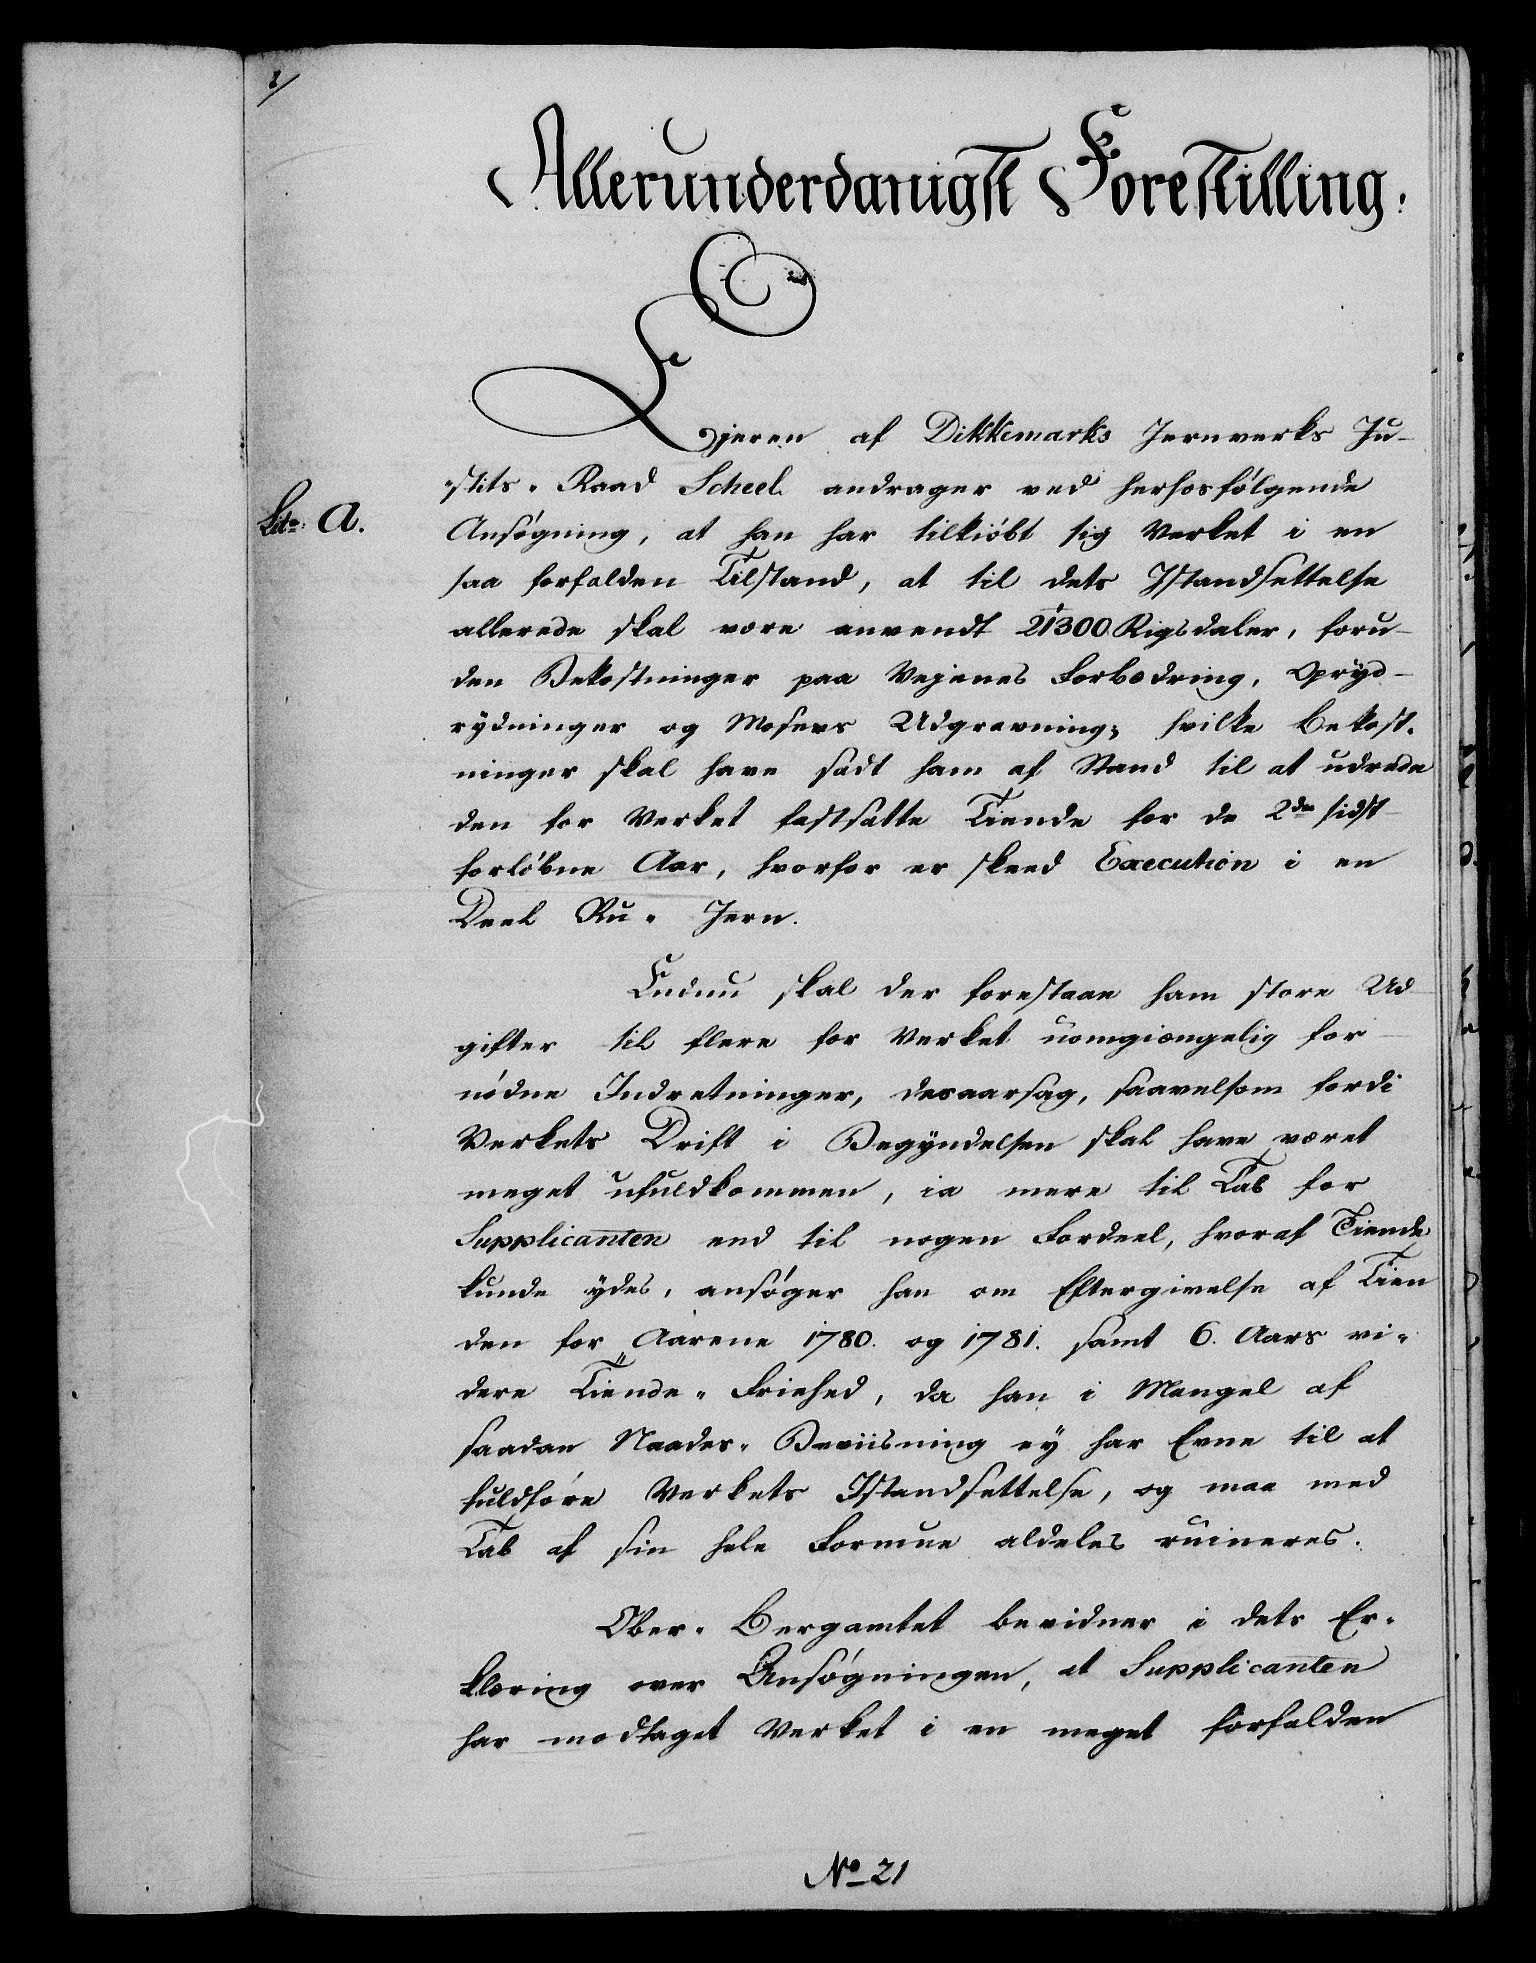 1/
Allerunderdanigst Forestilling.
Ejeren af Dikkemarks Jernverks Ju-
stits-Raad Scheel andrager ved herhosfølgende
Litr: A.
Ansøgning, at han har tilkiøbt sig Verket i en
saa forfalden Tilstand, at til dets Istandsettelse
allerede skal være anvendt 21300 Rigsdaler, foru-
den Bekostninger paa Vejenes Forbedring, Opryd-
rydninger og Mosers Udgravning; hvilke Bekost-
ninger skal have sadt ham af Stand til at udrede
den for Verket fastsatte Tiende for de 2de sidst
forløbne Aar, hvorfor er skeed Execution i en
Deel Ru-Jern.
Endnu skal der forestaae ham store Ud
gifter til flere for Verket uomgiængelig for-
nødne Indretninger, desaarsag, saavelsom fordi
Verkets Drift i Begyndelsen skal have været
meget ufuldkommen, ia mere til Tab for
Supplicanten end til nogen Fordeel, hvoraf Tiende
kunde ydes, ansøger han om Eftergivelse af Tien
den for Aarene 1780. og 1781. samt 6. Aars vi-
dere Tiende-Friehed, da han i Mangel af
saadan Naades-Beviisning ey har Evne til at
fuldføre Verkets Istandsettelse, og maa med
Tab af sin hele Formue aldeles ruineres.
Ober-Bergamtet bevidner i dets Er-
klæring over Ansøgningen, at Supplicanten
har modtaget Verket i en meget forfalden
No 21